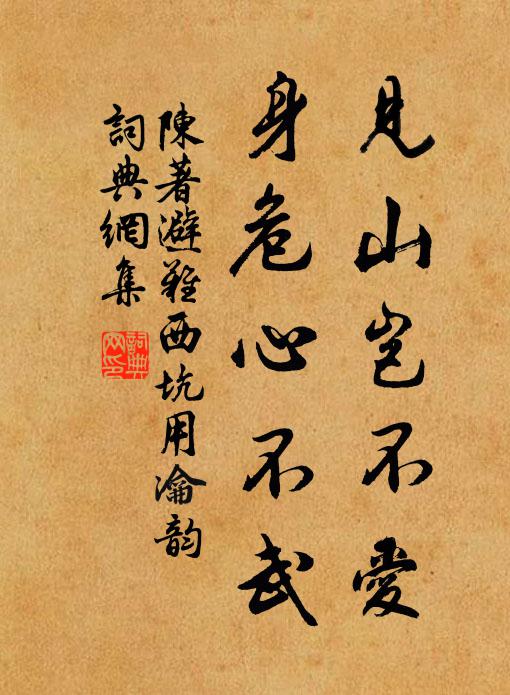 見山豈不愛
身危心不武
陳著避難西坑用瀹韵
詞典網集
詞典
网印